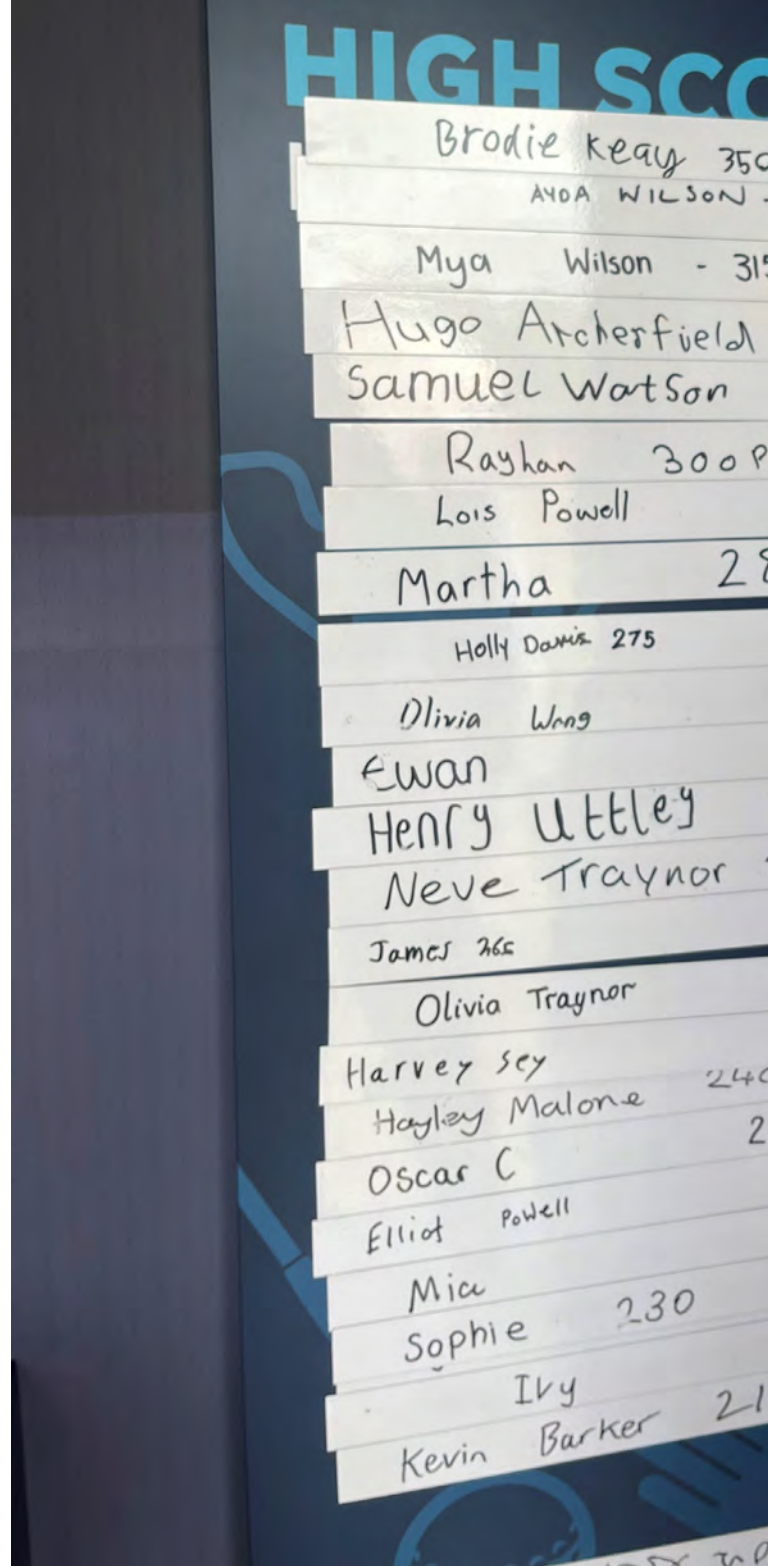 HIGH SCO
Brodie Keay 350
AYDA WILSON -
Mya Wilson - 315
Hugo Archerfield
Samuel Watson
Rayhan 300 P
Lois Powell
Martha 28
Holly Davis 275
Olivia Wang
Ewan
Henry Uttley
Neve Traynor
James 265
Olivia Traynor
Harvey Sey
Hayley Malone 240
Oscar C 2
Elliot Powell
Mia
Sophie 230
Ivy
Kevin Barker 21